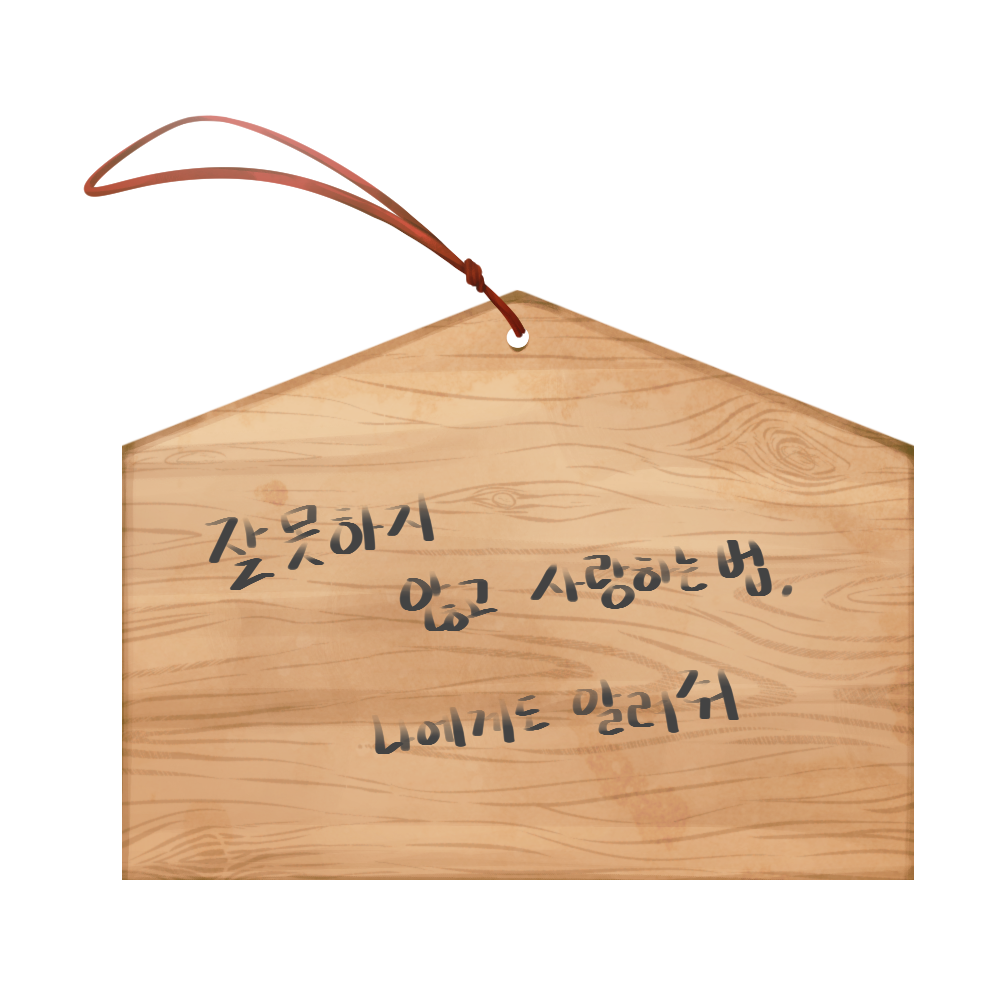 잘못하지
않고 사랑하는 법.
너에게도 알려줘